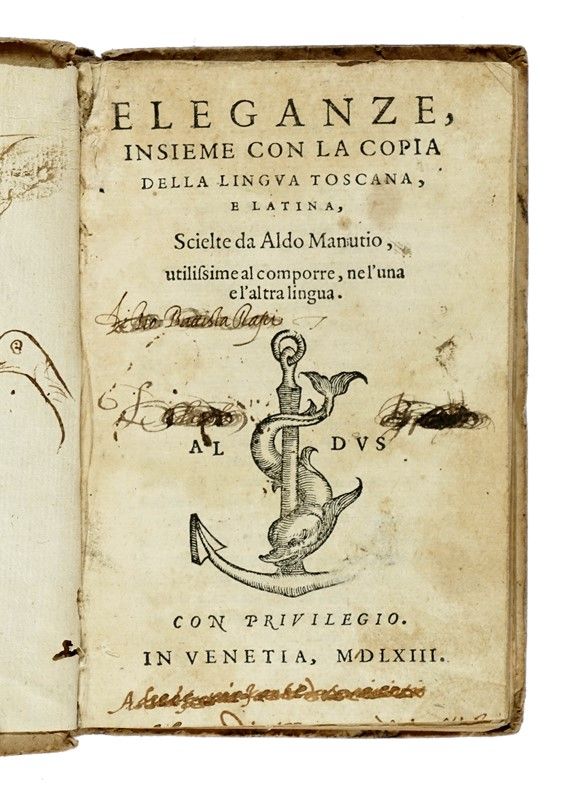 ELEGANZE,
INSIEME CON LA COPIA
DELLA LINGVA TOSCANA,
E LATINA,
Scielte da Aldo Manutio,
utiliſsime al comporre, ne l'una
e l'altra lingua.
Battista
AL DVS
CON PRIVILEGIO.
IN VENETIA, MDLXIII.